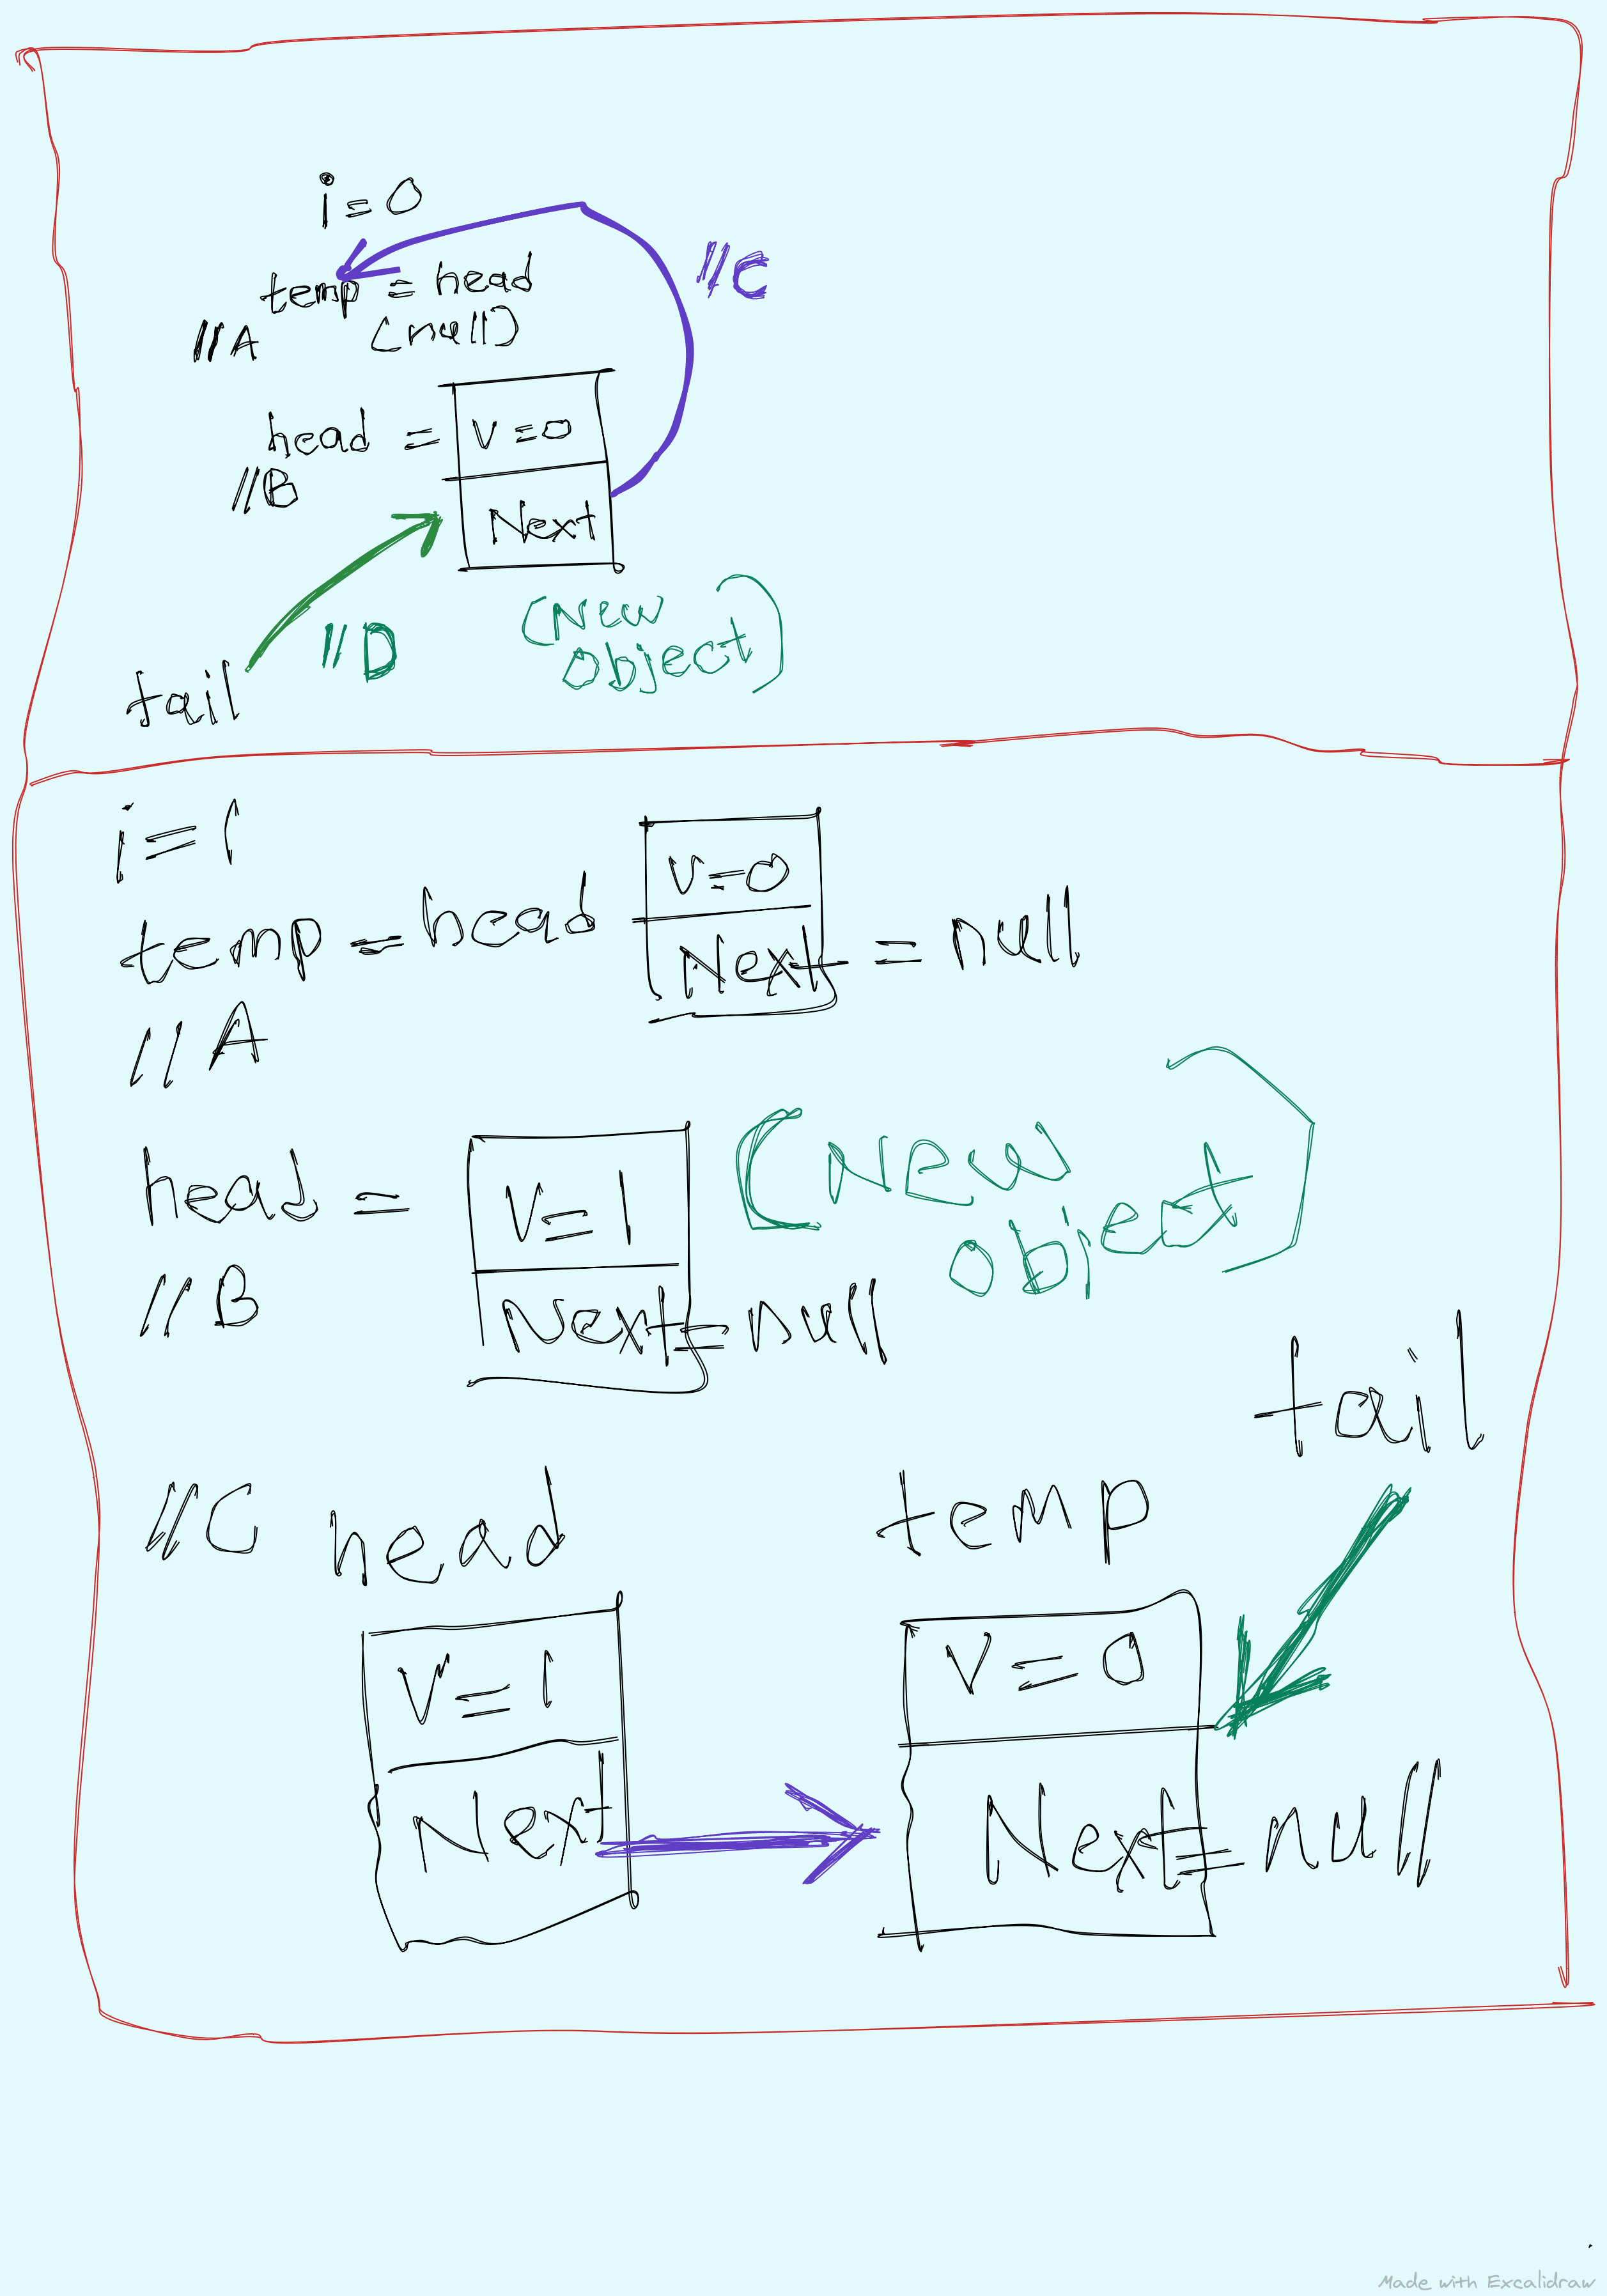 i=0
temp = head
//A (null)
//C
head = V=0
//B
Next
//D
(New
object)
tail
i=1
temp = head V=0
Next = null
//A
head = V=1
(New
object)
//B
Next=null
tail
//C head temp
V=1 V=0
Next Next=null
Made with Excalidraw